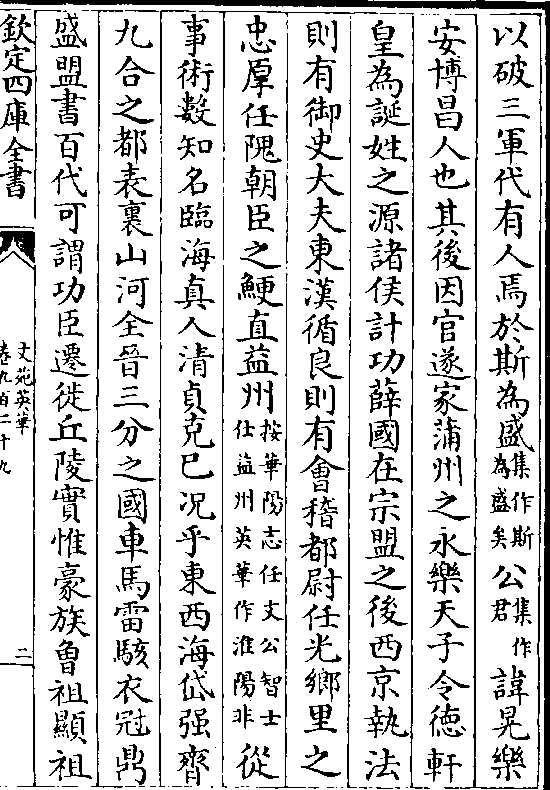 以破三軍代有人焉於斯為盛集作斯為盛矣公集作君諱晃樂
安博昌人也其後因官遂家蒲州之永樂天子令徳軒
皇為誕姓之源諸侯計功薛國在宗盟之後西京執法
則有御史大夫東漢循良則有會稽都尉任光鄉里之
忠厚任隗朝臣之鯁直益州按華陽志任文公智士仕益州英華作淮陽非從
事術數知名臨海真人清貞克已况乎東西海岱强齊
九合之都表裏山河全晉三分之國車馬雷駭衣冠鼎
盛盟書百代可謂功臣遷徙丘陵實惟豪族魯祖顯祖
欽定四庫全書
文苑英華
卷九百二十九
二